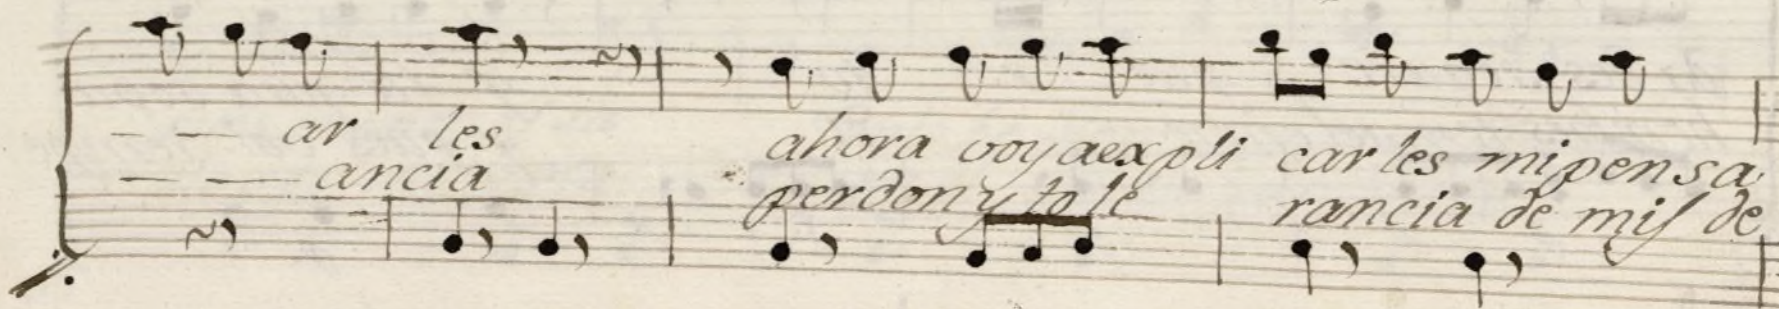 - - - ar les ahora voy a expli car les mi pensa
- - - ancia perdon y to le rancia de mis de